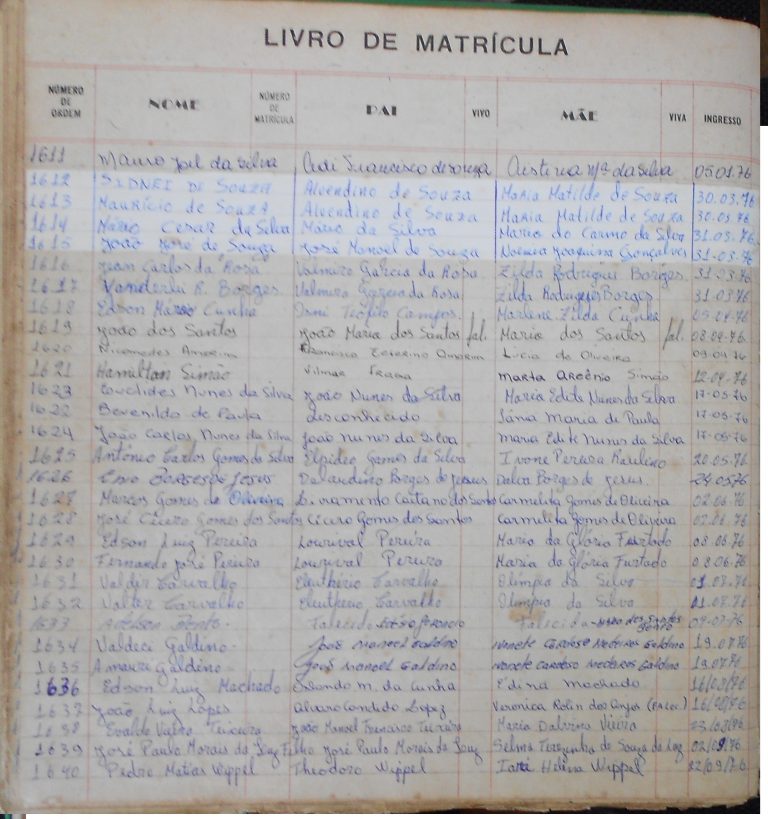 LIVRO DE MATRÍCULA
NÚMERO DE ORDEM NOME NÚMERO DE MATRÍCULA PAI VIVO MÃE VIVA INGRESSO
1611 Mauro Joel da Silva Francisco de Souza da Silva 05.01.76
1612 SIDNEI DE SOUZA Alvendino de Souza Maria Matilde de Souza 30.03.76
1613 MAURÍCIO DE SOUZA Alvendino de Souza Maria Matilde de Souza 30.03.76
1614 Mário Cesar da Silva Mário da Silva Maria do Carmo da Silva 31.03.76
1615 João José de Souza José Manoel de Souza Noêmia Joaquina Gonçalves 31-03-76
1616 Juan Carlos da Rosa Valmiro Garcia da Rosa Zilda Rodrigues Borges 31.03.76
1617 Vanderlei R. Borges Valmiro Garcia da Rosa Zilda Rodrigues Borges 31.03.76
1618 Edson Márcio Cunha Osni Teófilo Campos Marlene Zilda Cunha 05.04.76
1619 João dos Santos João Maria dos Santos fal. Maria dos Santos fal. 08.04.76
1620 Nicomedes Amorim Amorim Lucia de Oliveira 09.04.76
1621 Hamilton Simão Vilmar Marta Simão 12.04.76
1623 Euclides Nunes da Silva João Nunes da Silva Maria Edite Nunes da Silva 17-05-76
1622 Bevenildo de Paula desconhecido Tânia Maria de Paula 17-05-76
1624 João Carlos Nunes da Silva João Nunes da Silva Maria Edite Nunes da Silva 17-05-76
1625 Antônio Carlos Gomes da Silva Elpídeo Gomes da Silva Ivone Pereira 20.05.76
1626 Borges de Jesus Borges de Jesus Dalva Borges de Jesus 24.05.76
1627 Marcos Gomes de Oliveira Caetano dos Santos Carmelita Gomes de Oliveira 02.06.76
1628 José Cícero Gomes dos Santos Cícero Gomes dos Santos Carmelita Gomes de Oliveira 02.06.76
1629 Edson Luiz Pereira Lourival Pereira Maria da Glória Furtado 08.06.76
1630 Fernando José Pereira Lourival Pereira Maria da Glória Furtado 08.06.76
1631 Valdir Carvalho Eleutherio Carvalho Olimpia da Silva 01.07.76
1632 Valter Carvalho Eleutherio Carvalho Olimpia da Silva 01.07.76
1633 Falecido Falecida dos Santos 07.07.76
1634 Valdeci Galdino José Manoel Galdino Ivonete Cardoso Medeiros Galdino 19.07.76
1635 Amauri Galdino José Manoel Galdino Ivonete Cardoso Medeiros Galdino 19.07.76
1636 Edson Luiz Machado Orlando M. da Cunha Édina Machado 16/08/76
1637 João Luiz Lopes Alvaro Candido Lopez Veronica Rolin dos Anjos 16/08/76
1638 Evaldo Vieira Teixeira João Manoel Francisco Teixeira Maria Dalvina Vieira 23/08/76
1639 José Paulo Morais da Luz Filho José Paulo Morais da Luz Selma Terezinha de Souza da Luz 02/09/76
1640 Pedro Matias Wippel Theodoro Wippel Helena Wippel 22/09/76